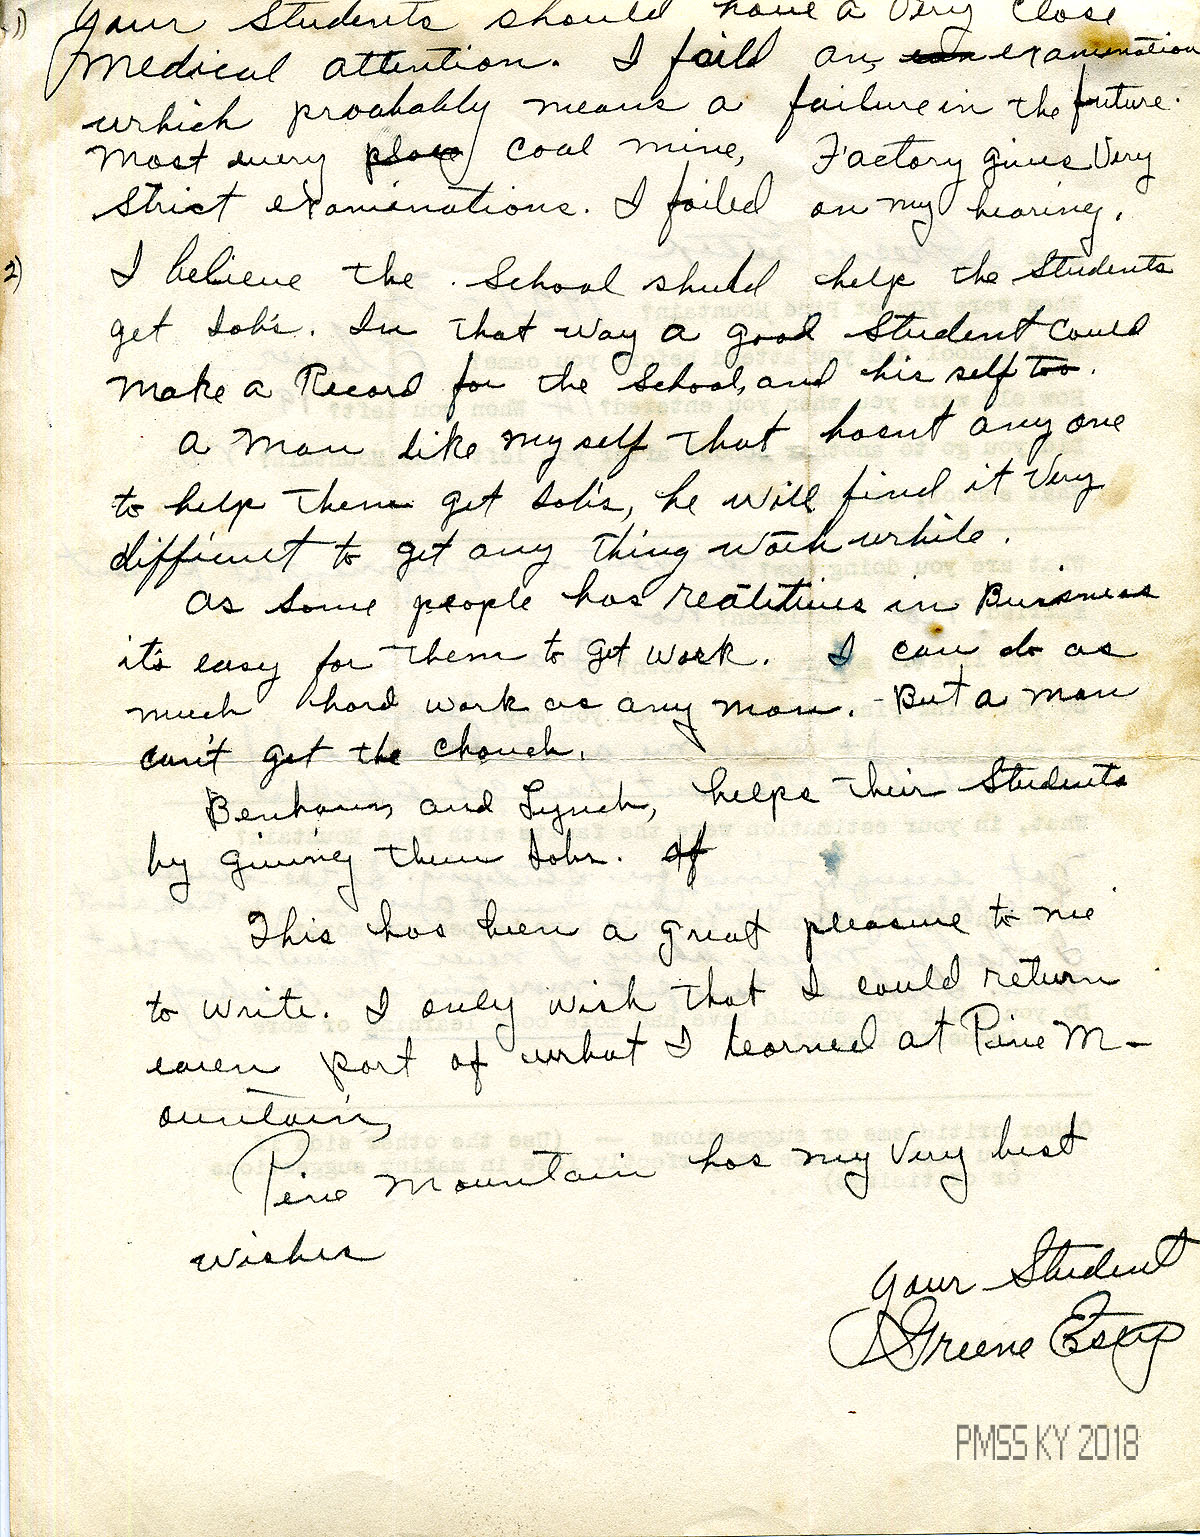 1) Your Students should have a Very Close
Medical attention. I faild an, examenation
which proabably means a failure in the future.
Most every coal mine, Factory gives Very
Strict examenations. I failed on my hearing.
2) I believe the School shuld help the Students
get Job's. In that way a good Student could
make a Record for the School, and his self too.
a man like my self that hasnt any one
to help them get Job's, he will find it Very
difficult to get any thing worth while.
as some people has realitives in Buisness
it's easy for them to get work. I can do as
much hard work as any man. - But a man
can't get the chanch.
Benham, and Lynch, helps their Students
by giving them Jobs.
This has been a great pleasure to me
to write. I only wish that I could return
even part of what I learned at Pine M-
ountain,
Pine Mountain has my Very best
wishes
Your Student
Greene Estep
PMSS KY 2018